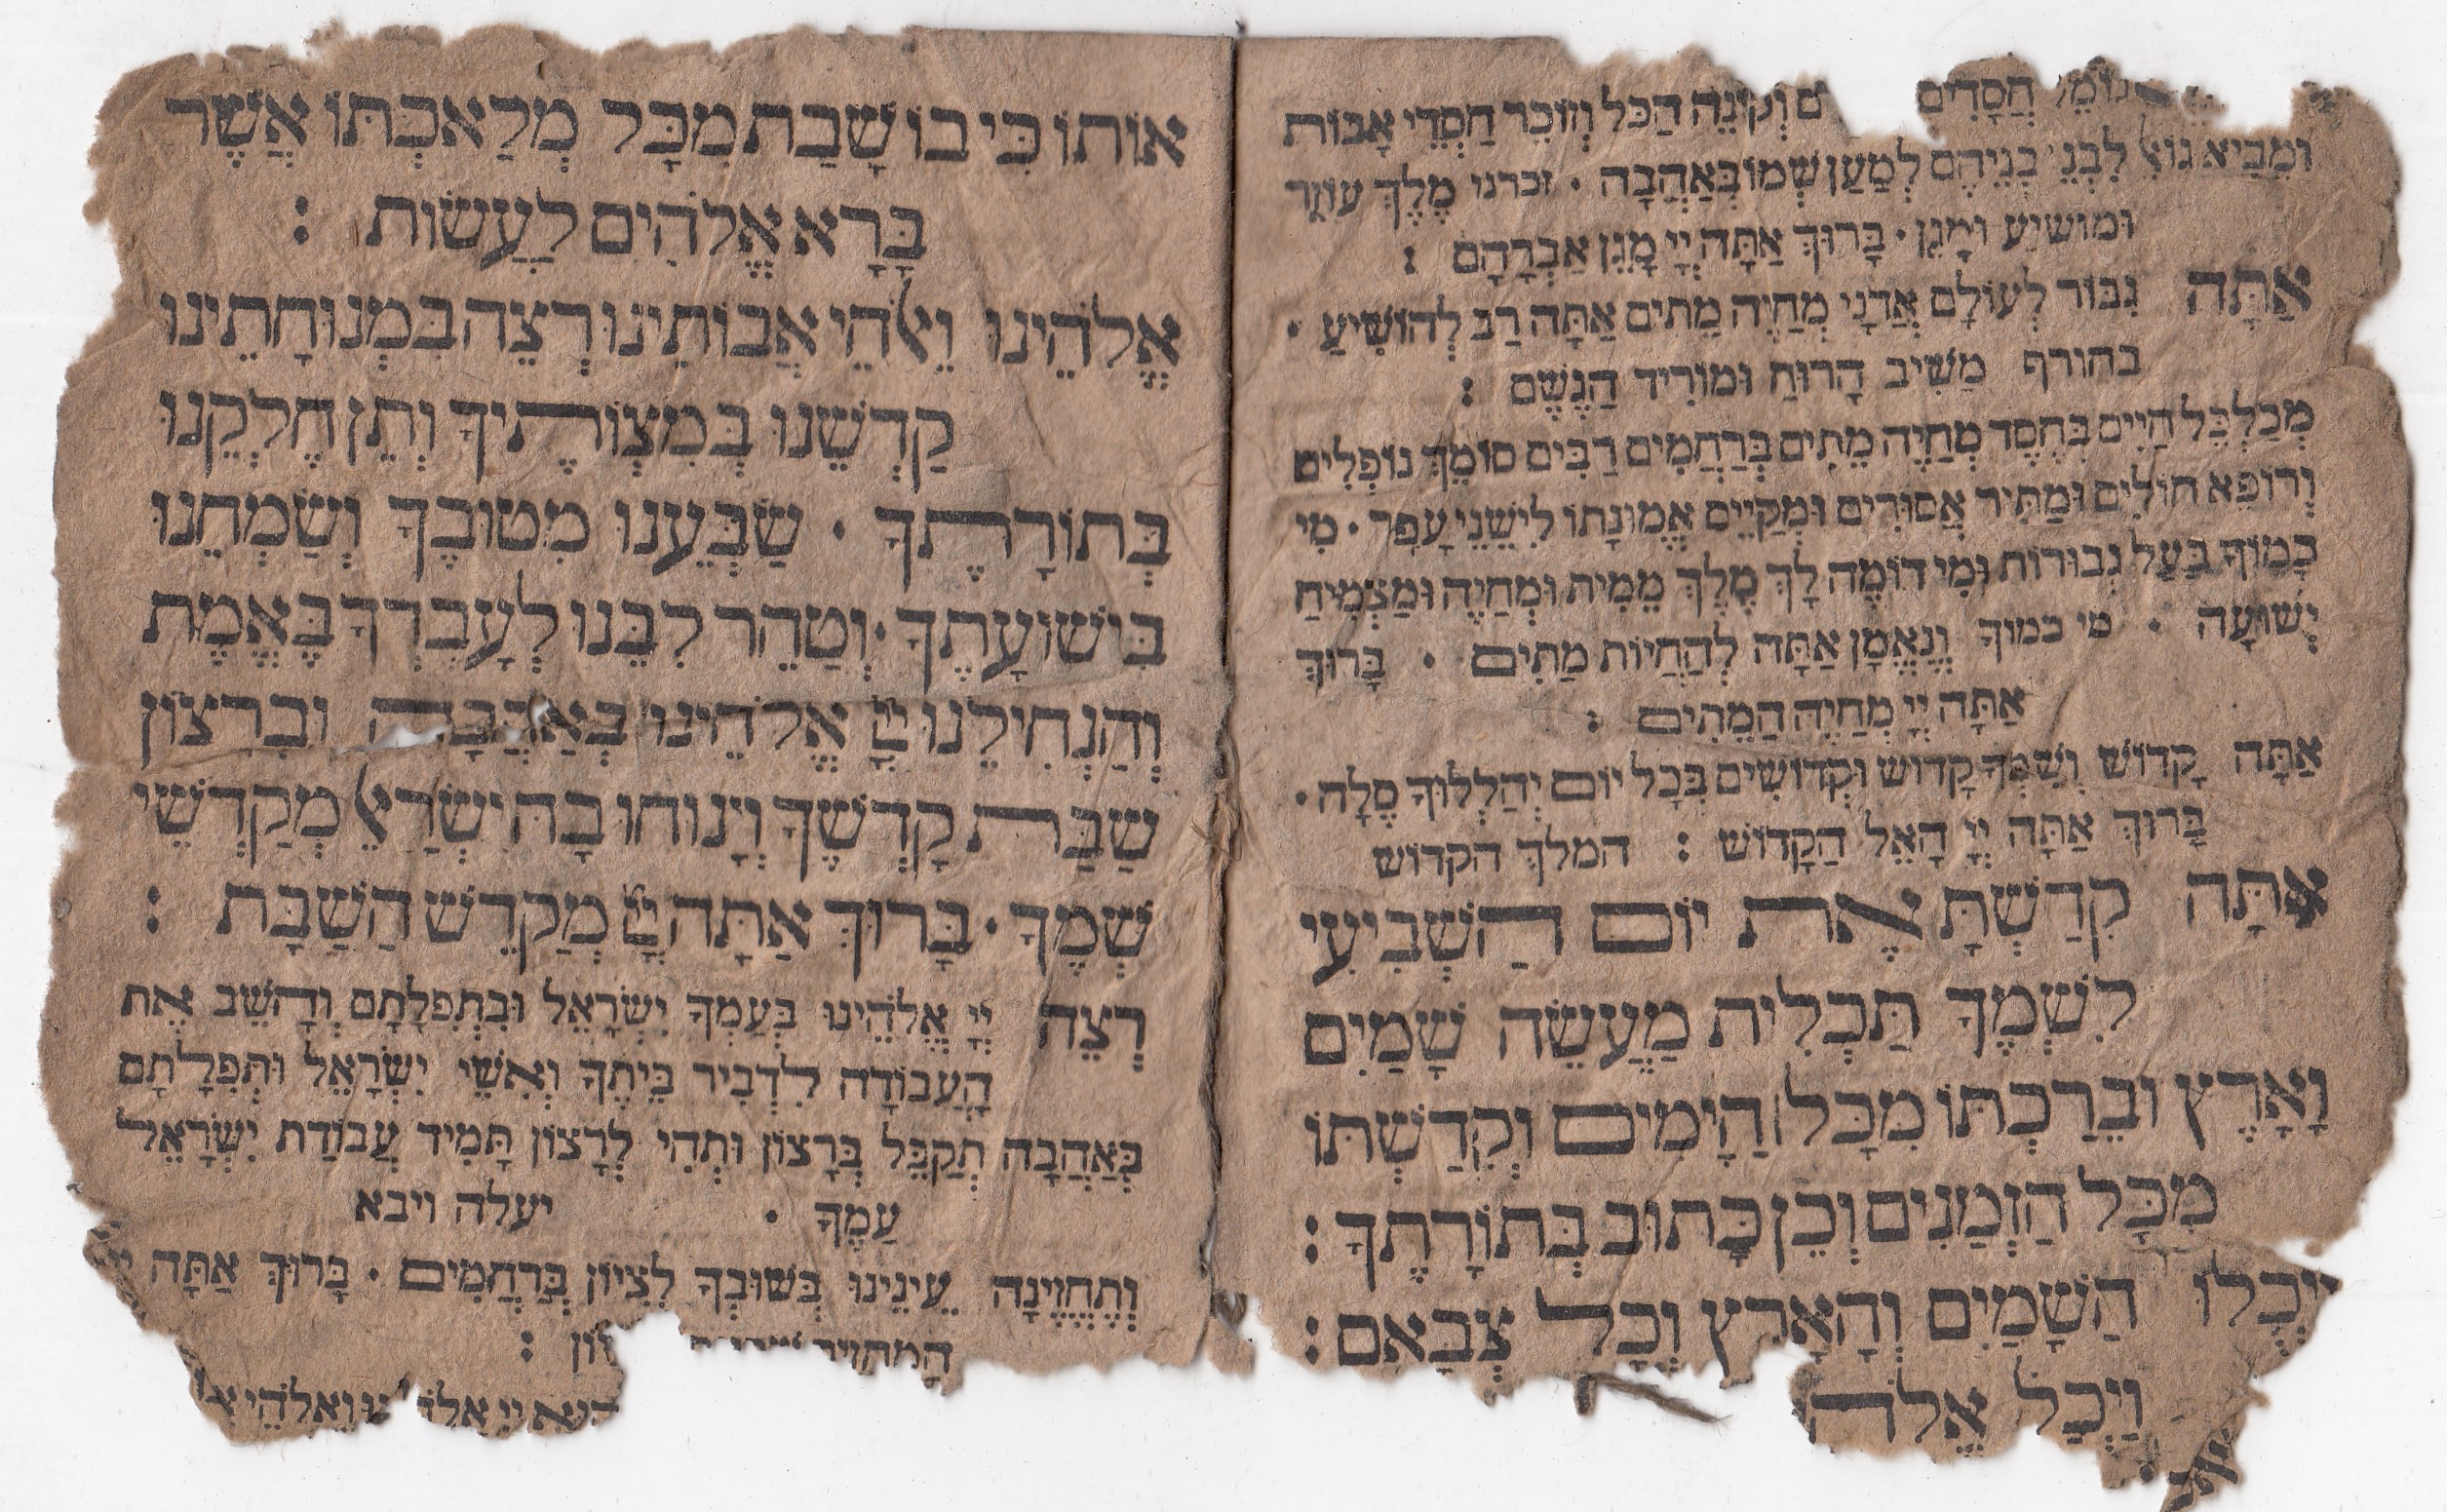 גומל חסדים וקונה הכל וזוכר חסדי אבות
ומביא גואל לבני בניהם לְמַעַן שְׁמוֹ בְּאַהֲבָה · זכרני מֶלֶךְ עוֹזֵר
וּמוֹשִׁיעַ וּמָגֵן · בָּרוּךְ אַתָּה יְיָ מָגֵן אַבְרָהָם :
אַתָּה גִבּוֹר לְעוֹלָם אֲדֹנָי מְחַיֶה מֵתִים אַתָּה רַב לְהוֹשִׁיעַ ·
בחורף מַשִׁיב הָרוּחַ וּמוֹרִיד הַגֶשֶׁם :
מְכַלְכֵּל חַיִים בְּחֶסֶד מְחַיֶה מֵתִים בְּרַחֲמִים רַבִּים סוֹמֵךְ נוֹפְלִים
וְרוֹפֵא חוֹלִים וּמַתִּיר אֲסוּרִים וּמְקַיֵים אֱמוּנָתוֹ לִישֵׁנֵי עָפָר · מִי
כָמוֹךָ בַּעַל גְבוּרוֹת וּמִי דוֹמֶה לָךְ מֶלֶךְ מֵמִית וּמְחַיֶה וּמַצְמִיחַ
יְשׁוּעָה · מי כמוך וְנֶאֱמָן אַתָּה לְהַחֲיוֹת מֵתִים · בָּרוּךְ
אַתָּה יְיָ מְחַיֵה הַמֵתִים :
אַתָּה קָדוֹשׁ וְשִׁמְךָ קָדוֹשׁ וּקְדוֹשִׁים בְּכָל יוֹם יְהַלְלוּךָ סֶלָה ·
בָּרוּךְ אַתָּה יְיָ הָאֵל הַקָדוֹשׁ : המלך הקדוש
אַתָּה קִדַשְׁתָּ אֶת יוֹם הַשְׁבִיעִי
לִשְׁמֶךָ תַּכְלִית מַעֲשֵׂה שָׁמַיִם
וָאָרֶץ וּבֵרַכְתּוֹ מִכָּל הַיָמִים וְקִדַשְׁתּוֹ
מִכָּל הַזְמַנִים וְכֵן כָּתוּב בְּתוֹרָתֶךָ :
וַיְכֻלוּ הַשָׁמַיִם וְהָאָרֶץ וְכָל צְבָאָם :
וַיְכַל אֱלֹה
אוֹתוֹ כִּי בוֹ שָׁבַת מִכָּל מְלַאכְתּוֹ אֲשֶׁר
בָּרָא אֱלֹהִים לַעֲשׂוֹת :
אֱלֹהֵינוּ וֵאלֹהֵי אֲבוֹתֵינוּ רְצֵה בִּמְנוּחָתֵינוּ
קַדְשֵׁנוּ בְּמִצְוֹתֶיךָ וְתֵן חֶלְקֵנוּ
בְּתוֹרָתֶךָ · שַׂבְּעֵנוּ מִטוּבֶךָ וְשַׂמְחֵנוּ
בִּישׁוּעָתֶךָ · וְטַהֵר לִבֵּנוּ לְעָבְדְךָ בֶּאֱמֶת
וְהַנְחִילֵנוּ יְיָ אֱלֹהֵינוּ בְּאַהֲבָה וּבְרָצוֹן
שַׁבַּת קָדְשֶׁךָ וְיָנוּחוּ בָהּ יִשְׂרָאֵל מְקַדְשֵׁי
שְׁמֶךָ · בָּרוּךְ אַתָּה יְיָ מְקַדֵשׁ הַשַׁבָּת :
רְצֵה יְיָ אֱלֹהֵינוּ בְּעַמְךָ יִשְׂרָאֵל וּבִתְפִלָתָם וְהָשֵׁב אֶת
הָעֲבוֹדָה לִדְבִיר בֵּיתֶךָ וְאִשֵׁי יִשְׂרָאֵל וּתְפִלָתָם
בְּאַהֲבָה תְקַבֵּל בְּרָצוֹן וּתְהִי לְרָצוֹן תָּמִיד עֲבוֹדַת יִשְׂרָאֵל
עַמֶךָ · יעלה ויבא
וְתֶחֱזֶינָה עֵינֵינוּ בְּשׁוּבְךָ לְצִיוֹן בְּרַחֲמִים · בָּרוּךְ אַתָּה
הַמַחֲזִיר :
וֵאלֹהֵי